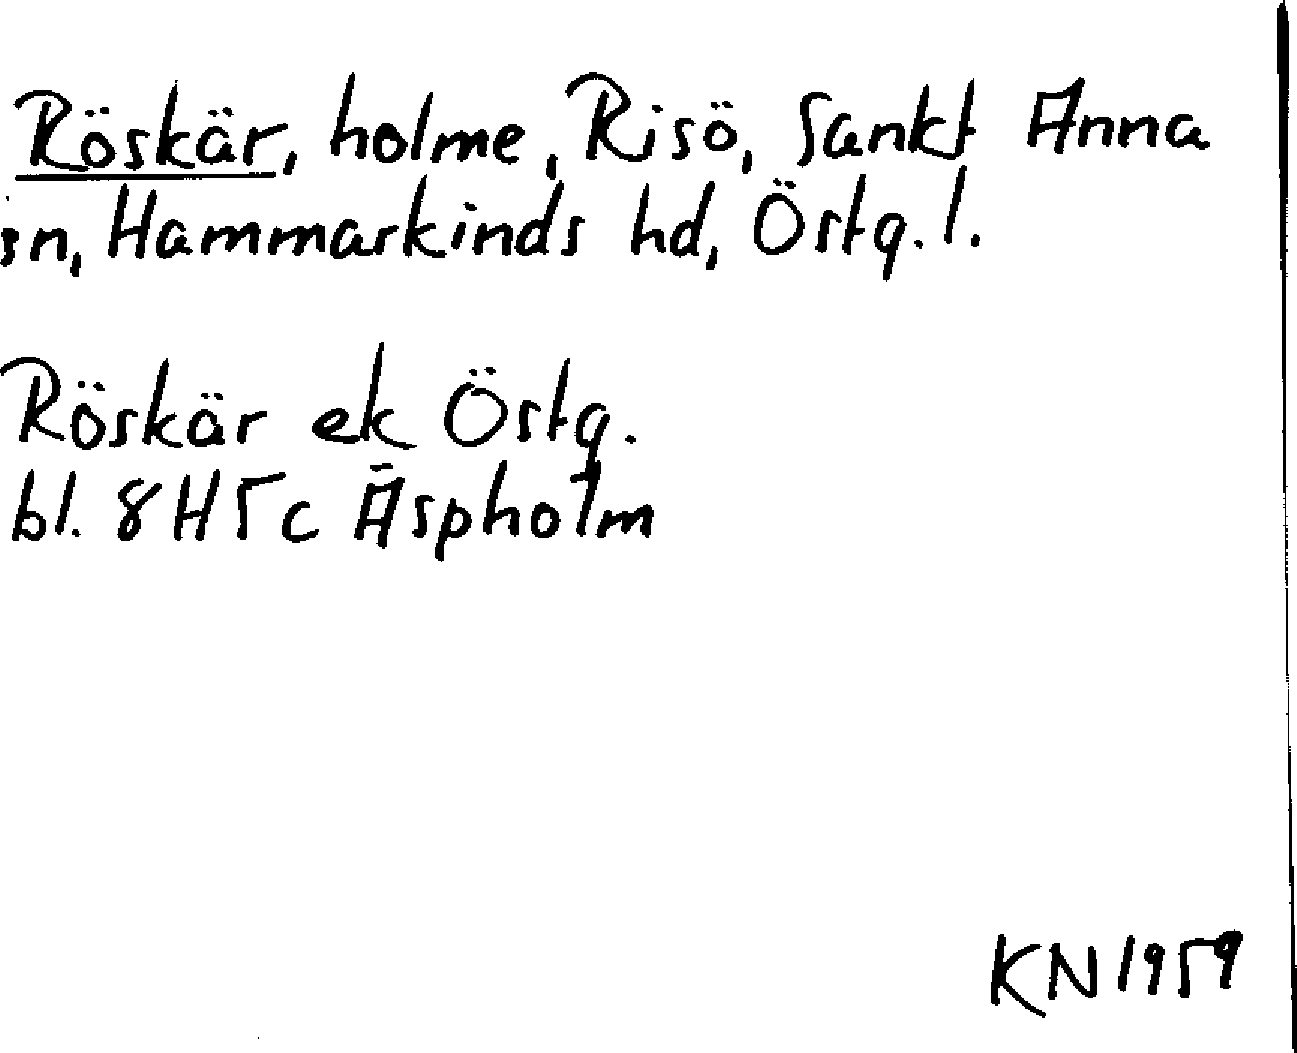 Röskär, holme, Risö, Sankt Anna
sn, Hammarkinds hd, Östg. l.
Röskär ek Östg.
bl. 8H5c Äspholm
KN1959